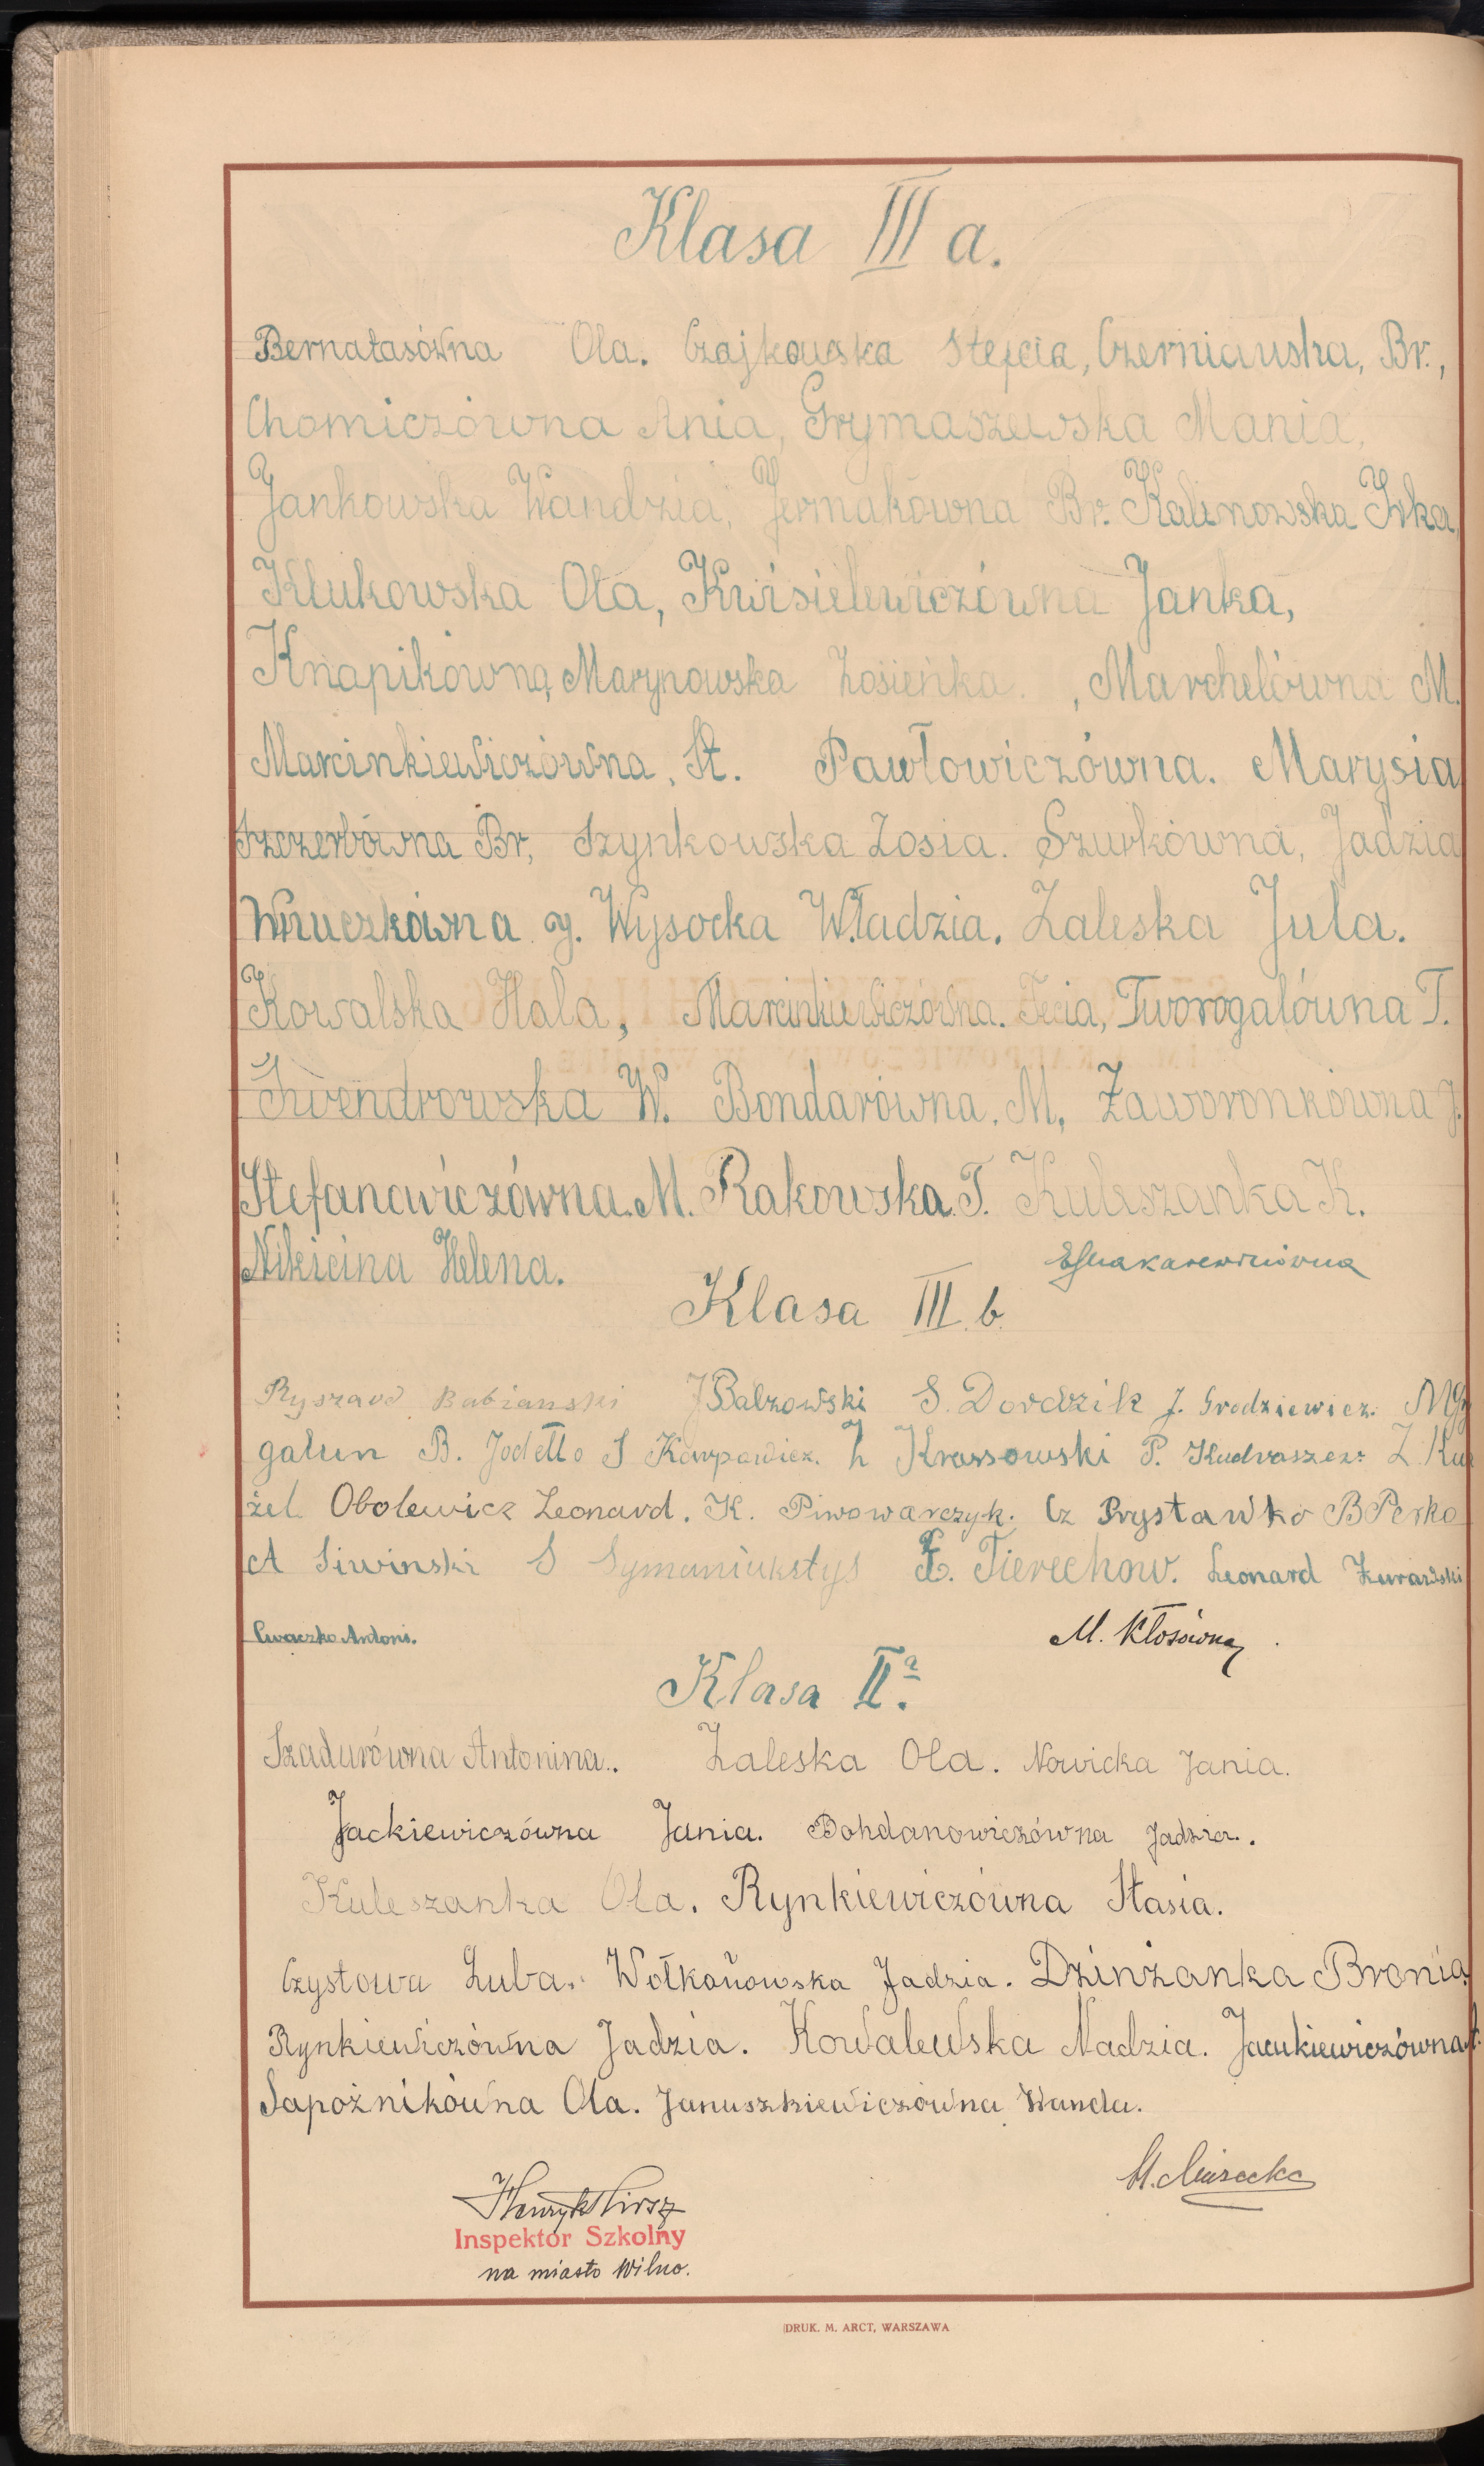 Klasa III a.
Bernatasówna Ola. Czajkowska Stefcia, Czerniauska, Br.,
Chomiczówna Ania, Grymaszewska Mania,
Jankowska Wandzia, Jermakówna Br. Kalinowska Irka,
Klukowska Ola, Kwisielewiczówna Janka,
Knapikówna, Marynowska Zosieńka. , Marchelówna M.
Marcinkiewiczówna, St. Pawłowiczówna. Marysia
Szczerbówna Br, Szynkowska Zosia. Szurkówna, Jadzia
Wnuczkówna J. Wysocka Władzia. Zaleska Jula.
Kowalska Hala, Marcinkiewiczówna. Fecia, Tworogalówna T.
Swendrowska W. Bondarówna. M, Zaworonkówna J.
Stefanowiczówna. M. Rakowska. T. Kuleszanka K.
Nikicina Helena.
Klasa III b.
Ryszard Babianski J Balzowski S. Dordzik J. Grodziewicz. M Gy
galun B. Jodełło S Karpowicz. Z Krassowski P. Kudraszew Z. Ku
żel. Obolewicz Leonard. K. Piwowarczyk. Cz Prystawko B Perko
A Siwinski S Symaniukstys F. Tierechow. Leonard Żurawski
Cwaczko Antoni. M. Kłosówna
Klasa II a.
Szadurówna Antonina. Zaleska Ola. Nowicka Jania.
Jackiewiczówna Jania. Bohdanowiczówna Jadzia.
Kuleszanka Ola. Rynkiewiczówna Stasia.
Czystowa Luba. Wołkońowska Jadzia. Dzinżanka Bronia.
Rynkiewiczówna Jadzia. Kowalewska Nadzia. Jacukiewiczówna
Sapożnikówna Ola. Januszkiewiczówna Wanda.
Henryk
Inspektor Szkolny
na miasto Wilno.
DRUK. M. ARCT, WARSZAWA